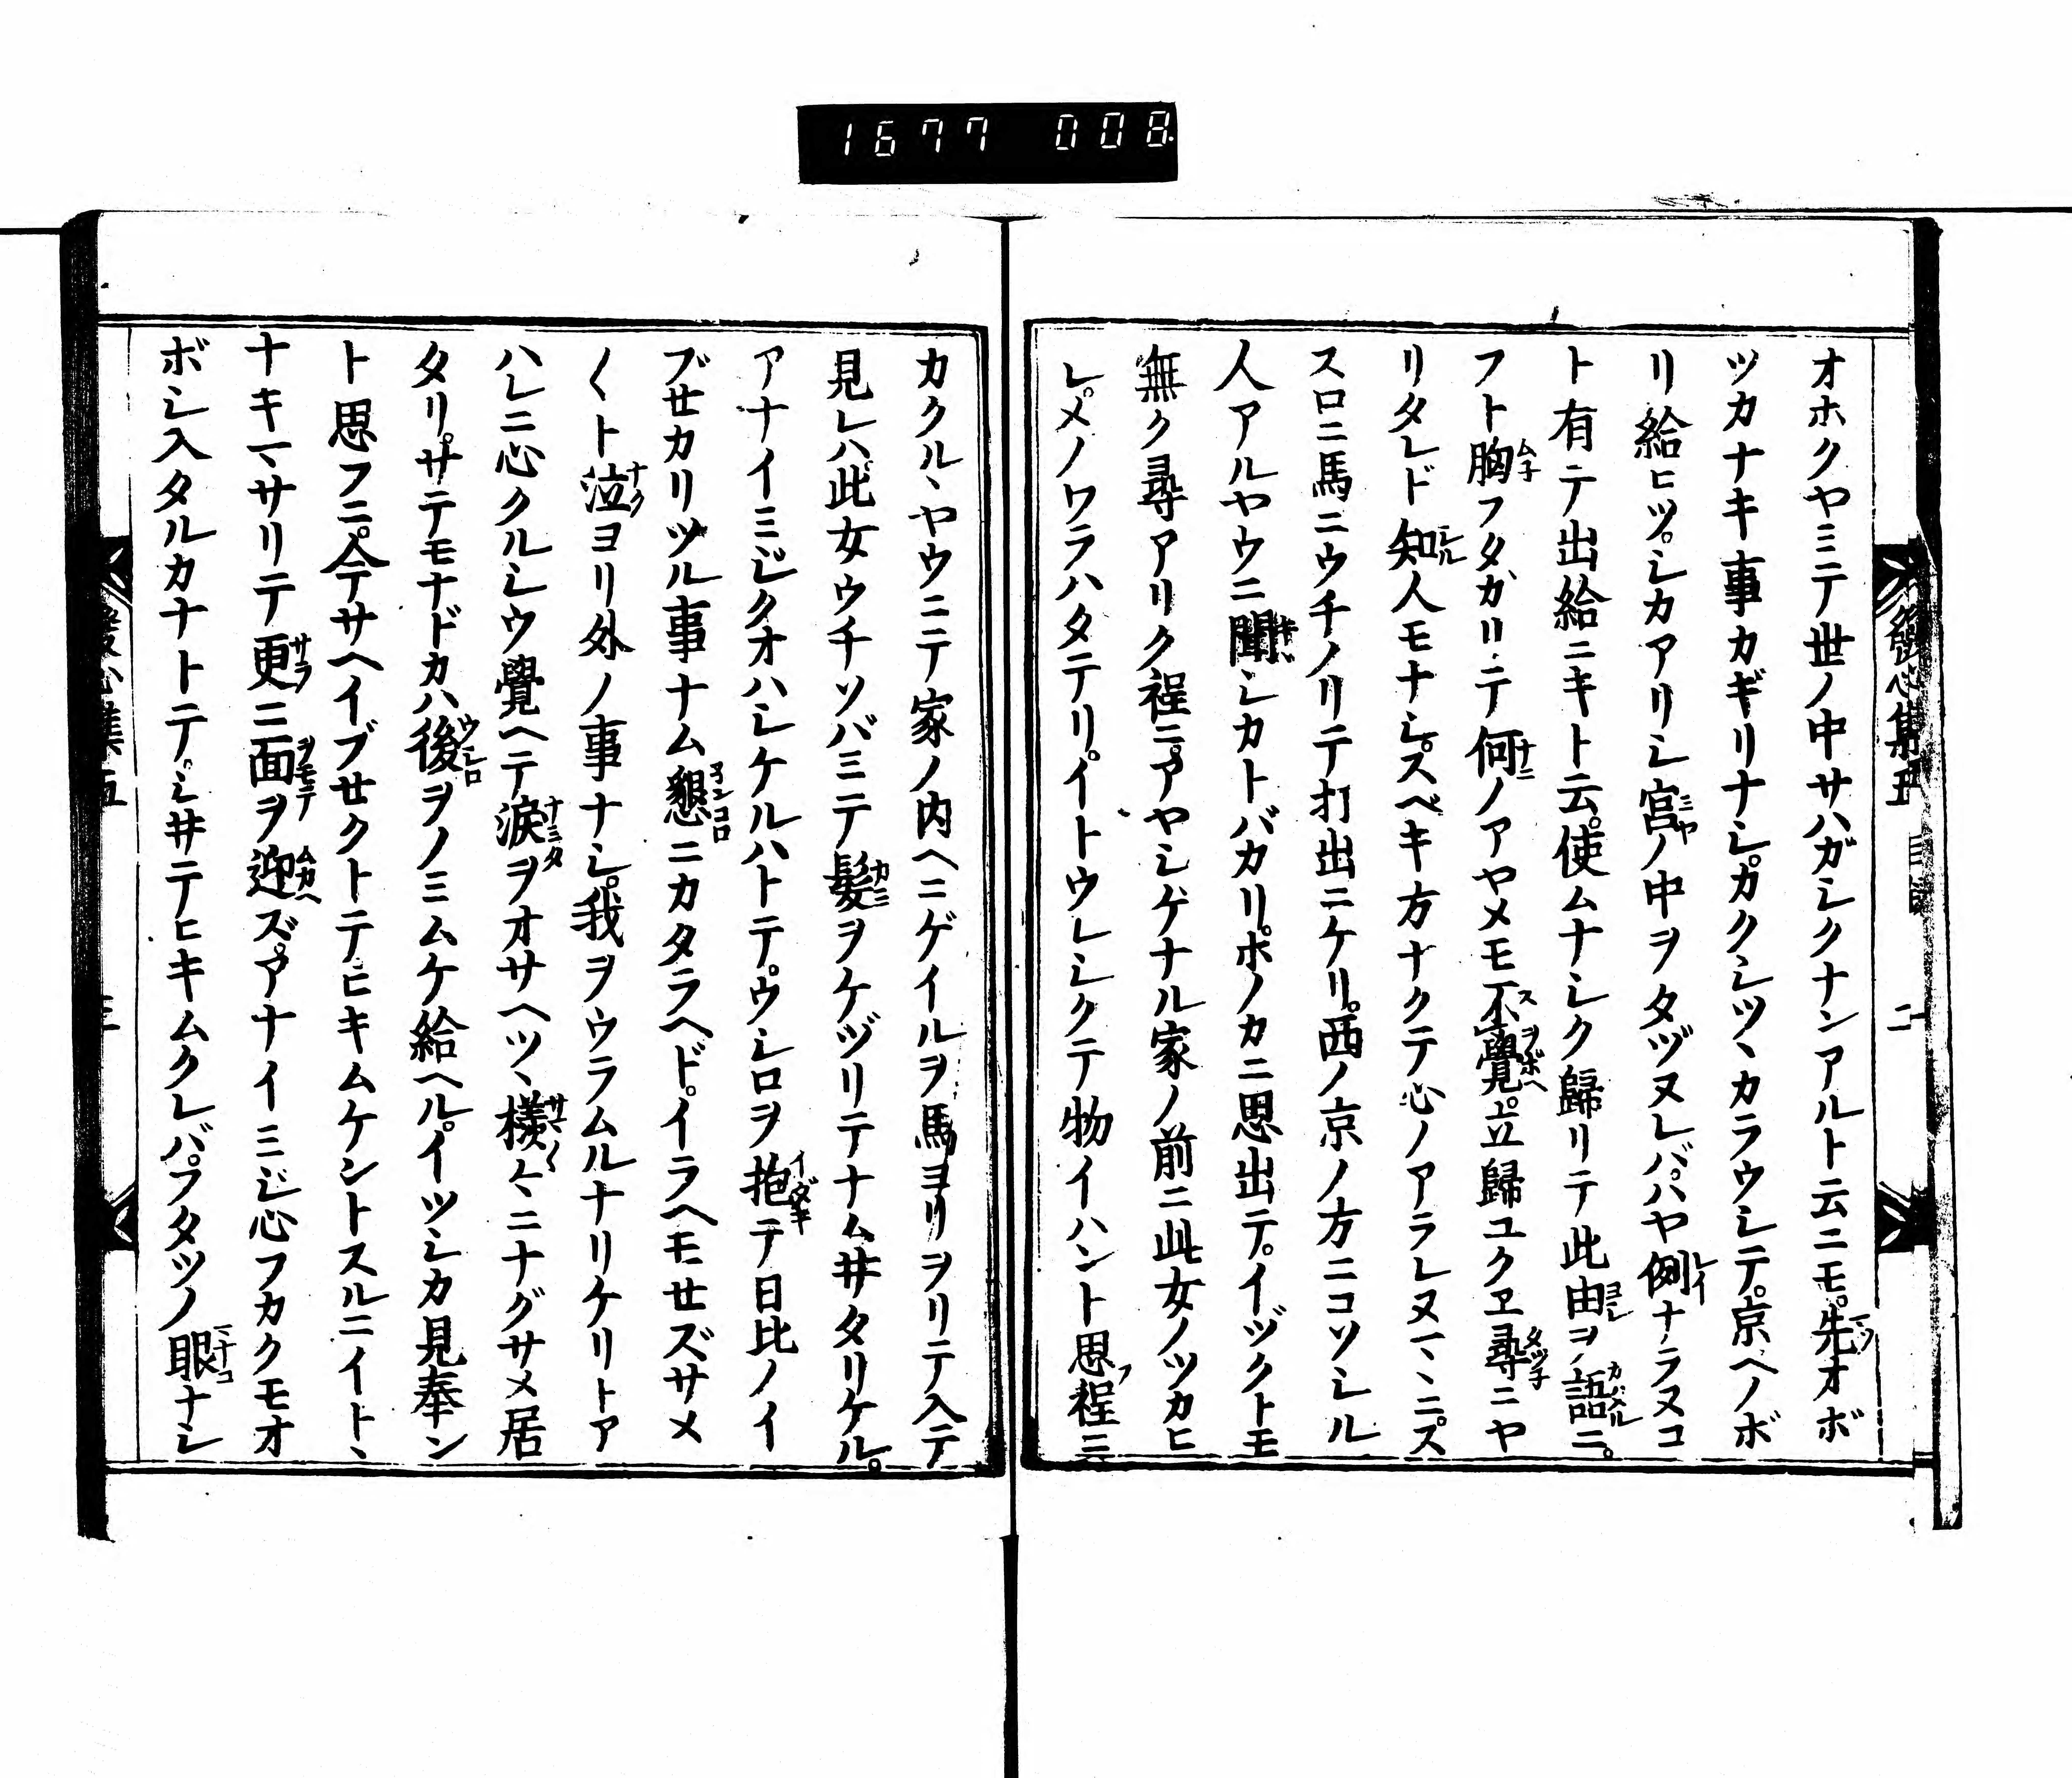 1677 008
發心集五
二
オホクヤミテ世ノ中サハガシクナンアルト云ニモ。先オボ
ツカナキ事カギリナシ。カクシツヽカラウシテ。京ヘノボ
リ給ヒツ。シカアリシ宮ノ中ヲタヅヌレバ。ハヤ例ナラヌコ
ト有テ出給ニキト云。使ムナシク歸リテ此由ヲ語ニ。
フト胸フタガリテ何ノアヤメモ不覺。立歸ユクヱ尋ニヤ
リタレド知人モナシ。スベキ方ナクテ心ノアラレヌマヽニ。ス
スロニ馬ニウチノリテ打出ニケリ。西ノ京ノ方ニコソシル
人アルヤウニ聞シカトバカリ。ホノカニ思出テ。イヅクトモ
無ク尋アリク程ニ。アヤシゲナル家ノ前ニ此女ノツカヒ
シ。メノワラハタテリ。イトウレシクテ物イハント思程ニ
カクルヽヤウニテ家ノ内ヘニゲイルヲ馬ヨリヲリテ入テ
見レハ此女ウチソバミテ髮ヲケヅリテナムヰタリケル。
アナイミジクオハシケルハトテ。ウシロヲ抱テ日比ノイ
ブセカリツル事ナム懇ニカタラヘド。イラヘモセズサメ
〱ト泣ヨリ外ノ事ナシ。我ヲウラムルナリケリトア
ハレニ心クルシウ覺ヘテ涙ヲオサヘツヽ樣々ニナグサメ居
タリ。サテモナドカハ後ヲノミムケ給ヘル。イツシカ見奉ン
ト思フニ。今サヘイブセクトテヒキムケントスルニイトヽ
ナキマサリテ更ニ面ヲ迎ズ。アナイミジ心フカクモオ
ボシ入タルカナトテ。シヰテヒキムクレバ。フタツノ眼ナシ
發心集五
三